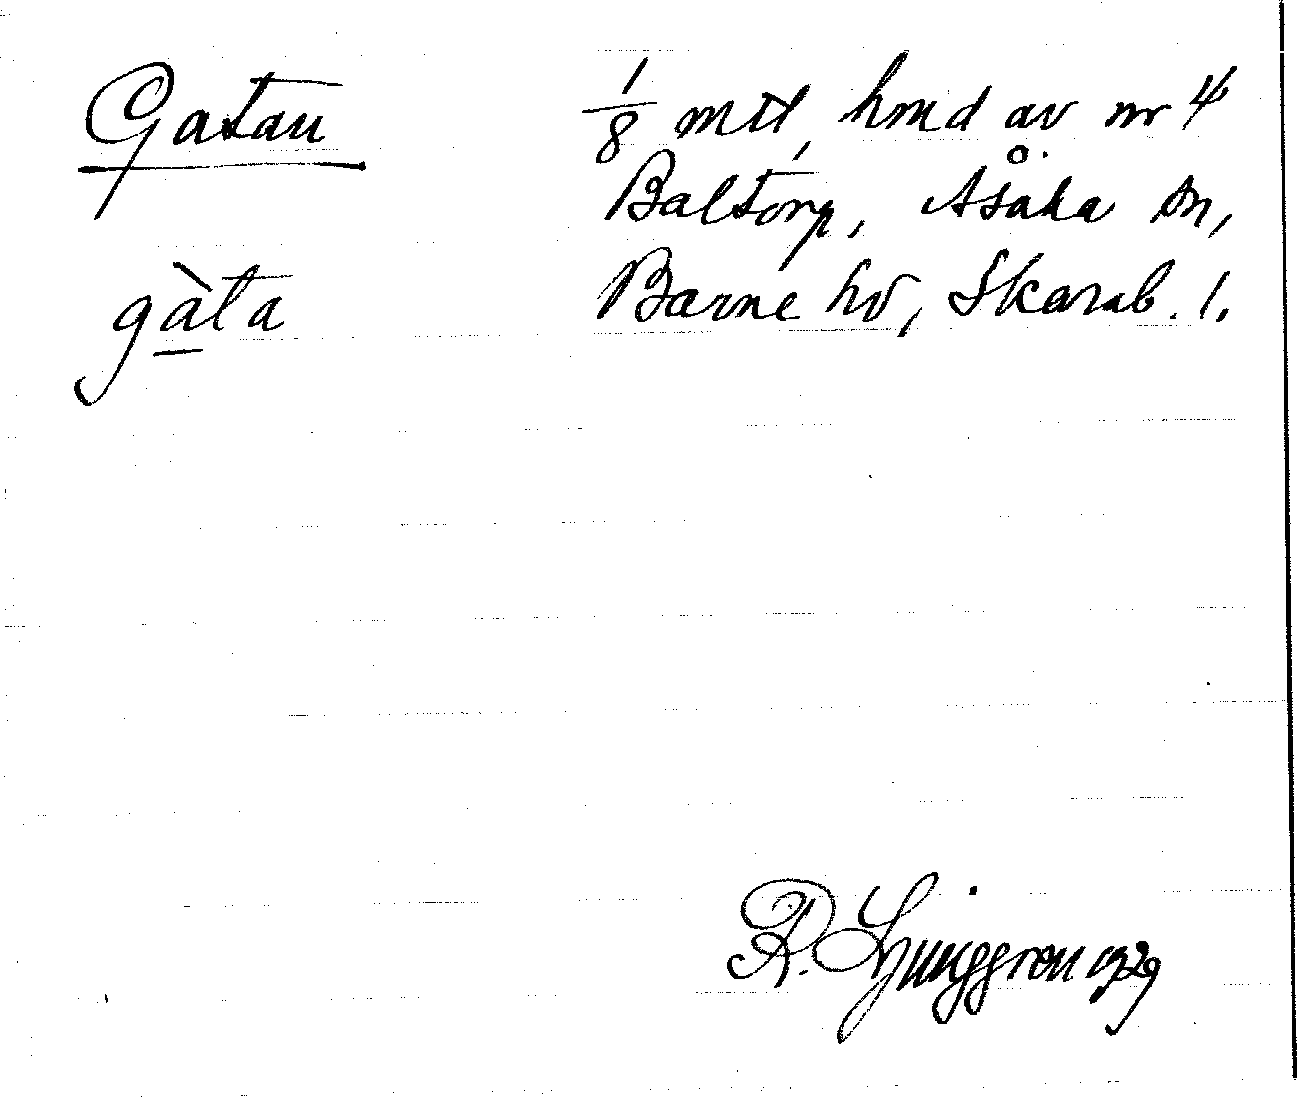 Gatan
gàta
1/8 mtl hmd av nr 4
Baltorp, Åsaka sn,
Barne hd, Skarab. l.
R. Ljunggren 1929